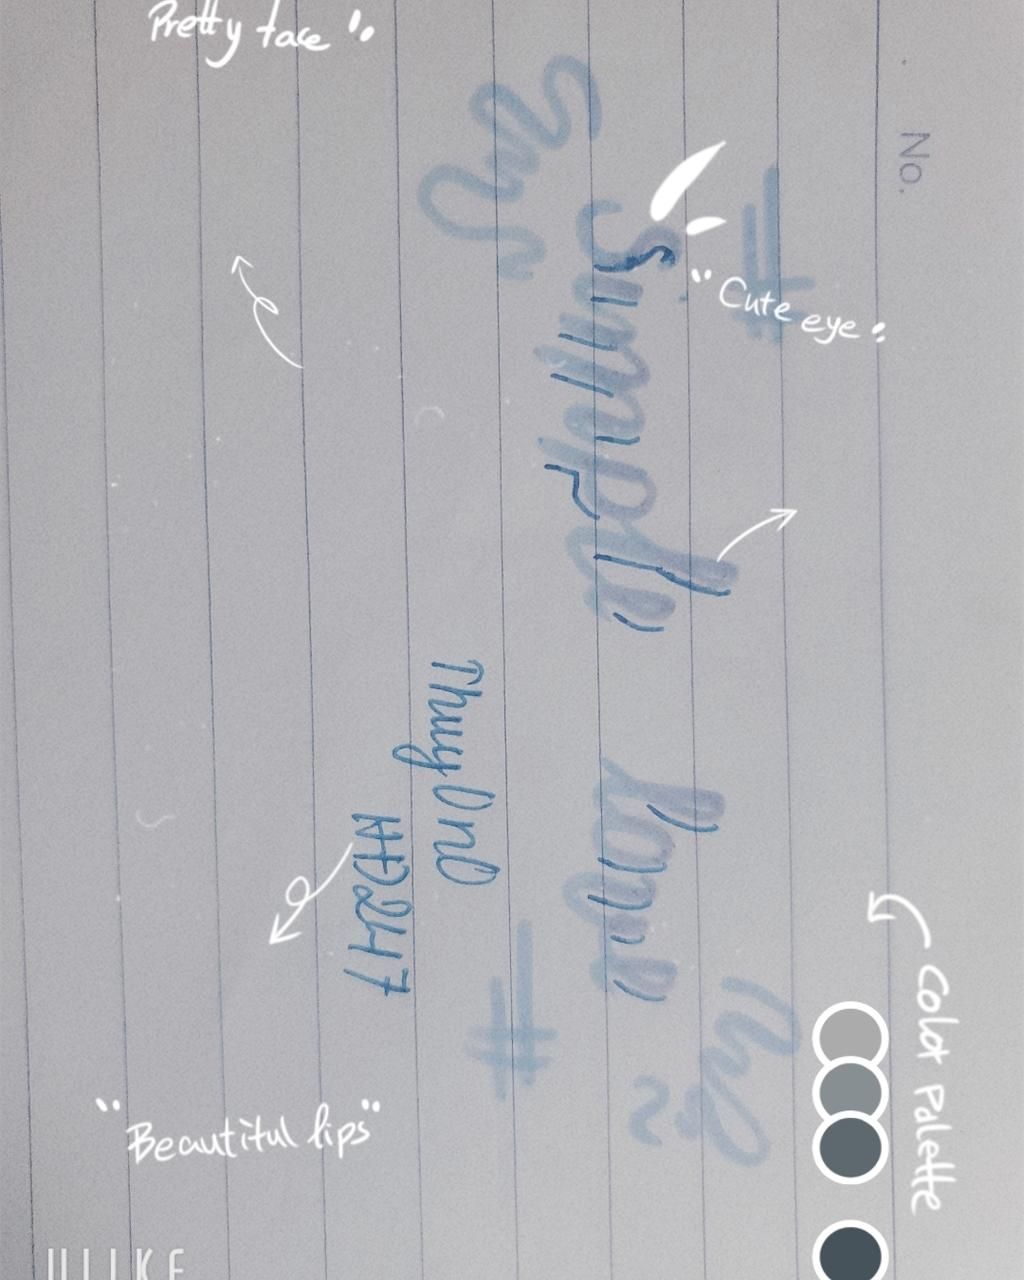 Pretty face
No.
"Cute eye"
Simple love
ThuyOnl
HD2417
Color Palette
"Beautiful lips"
ULIKE